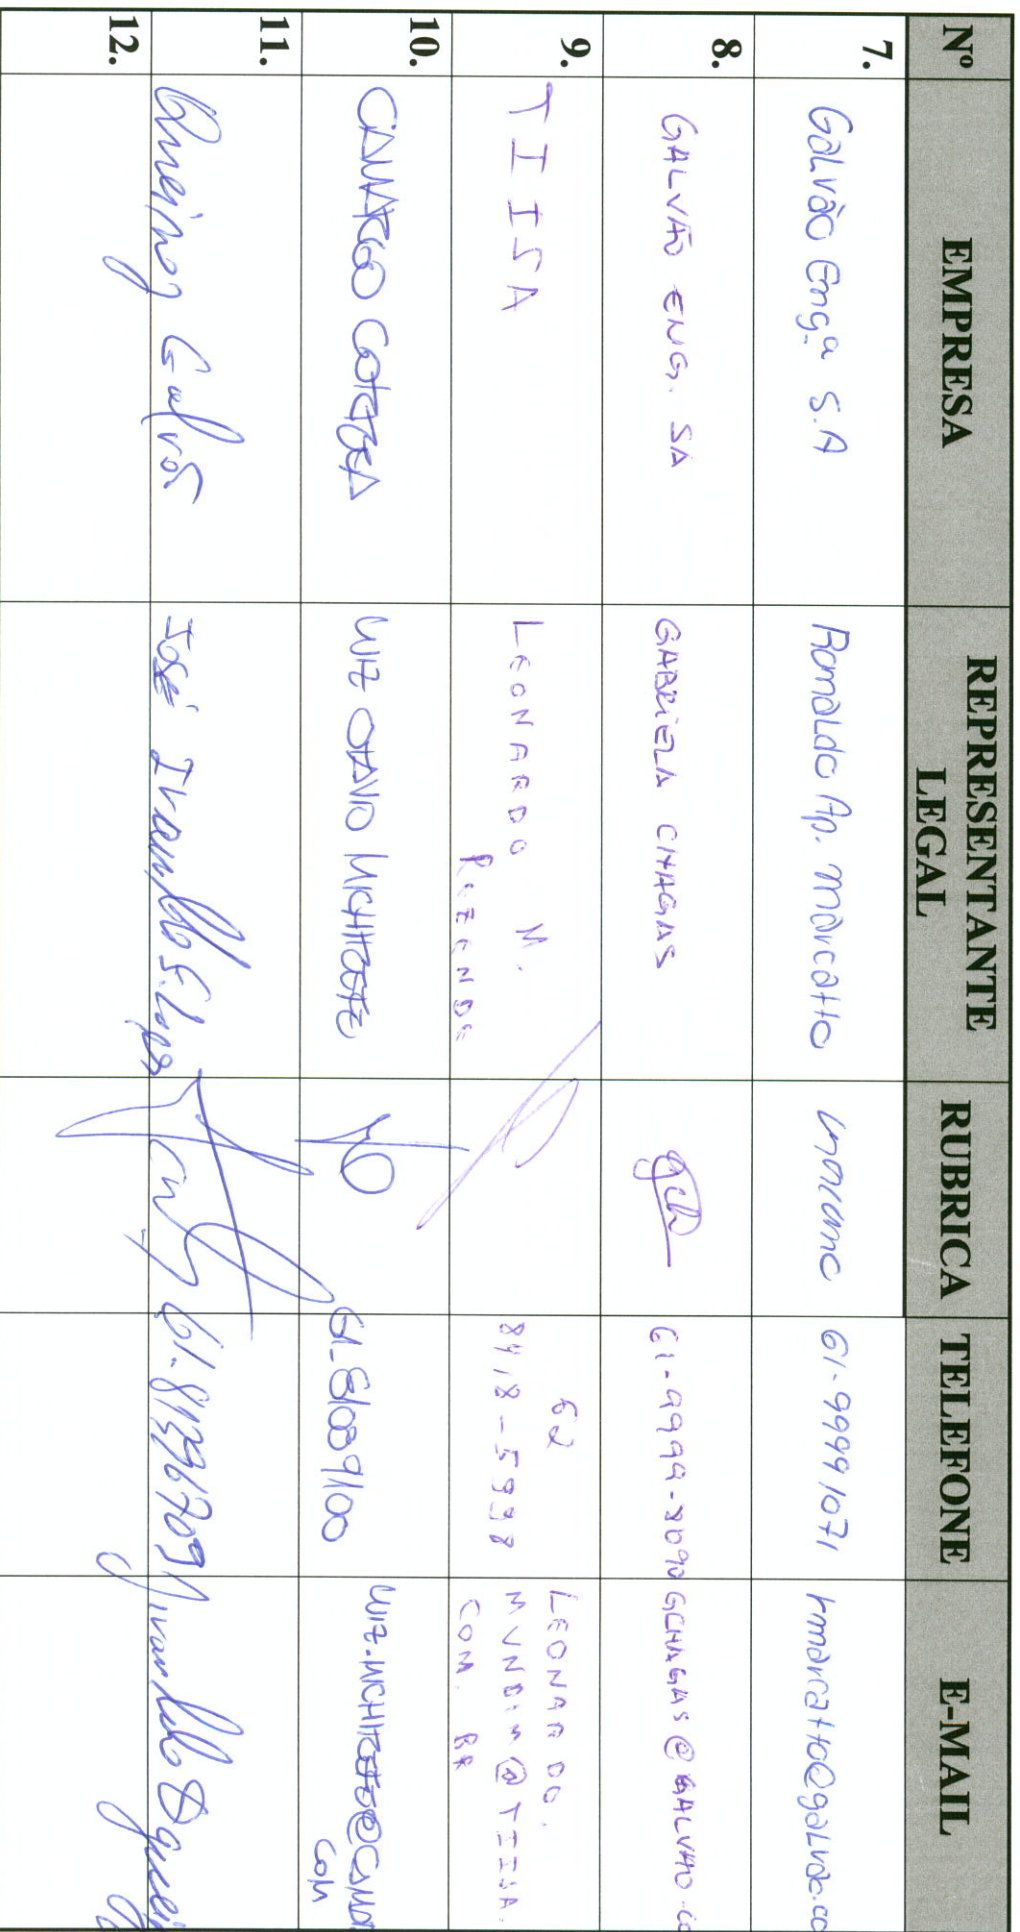 Nº EMPRESA REPRESENTANTE LEGAL RUBRICA TELEFONE E-MAIL
7. Galvão Eng.a S.A Romaldo Ap. Marcatto 61-99991071
8. GALVÃO ENG. SA GABRIELA CHAGAS gch 61-9999-8090 GCHAGAS@GALVAO.CO
9. TIISA LEONARDO M. REZENDE 62 8418-5998 LEONARDO.
MUNDIM@TIISA.
COM.BR
10. CAMARGO CORREA LUIZ OTAVIO 61-81089100
COM
11. Queiroz Galvão José Ivanildo S. Lopes 61-81396709
12.